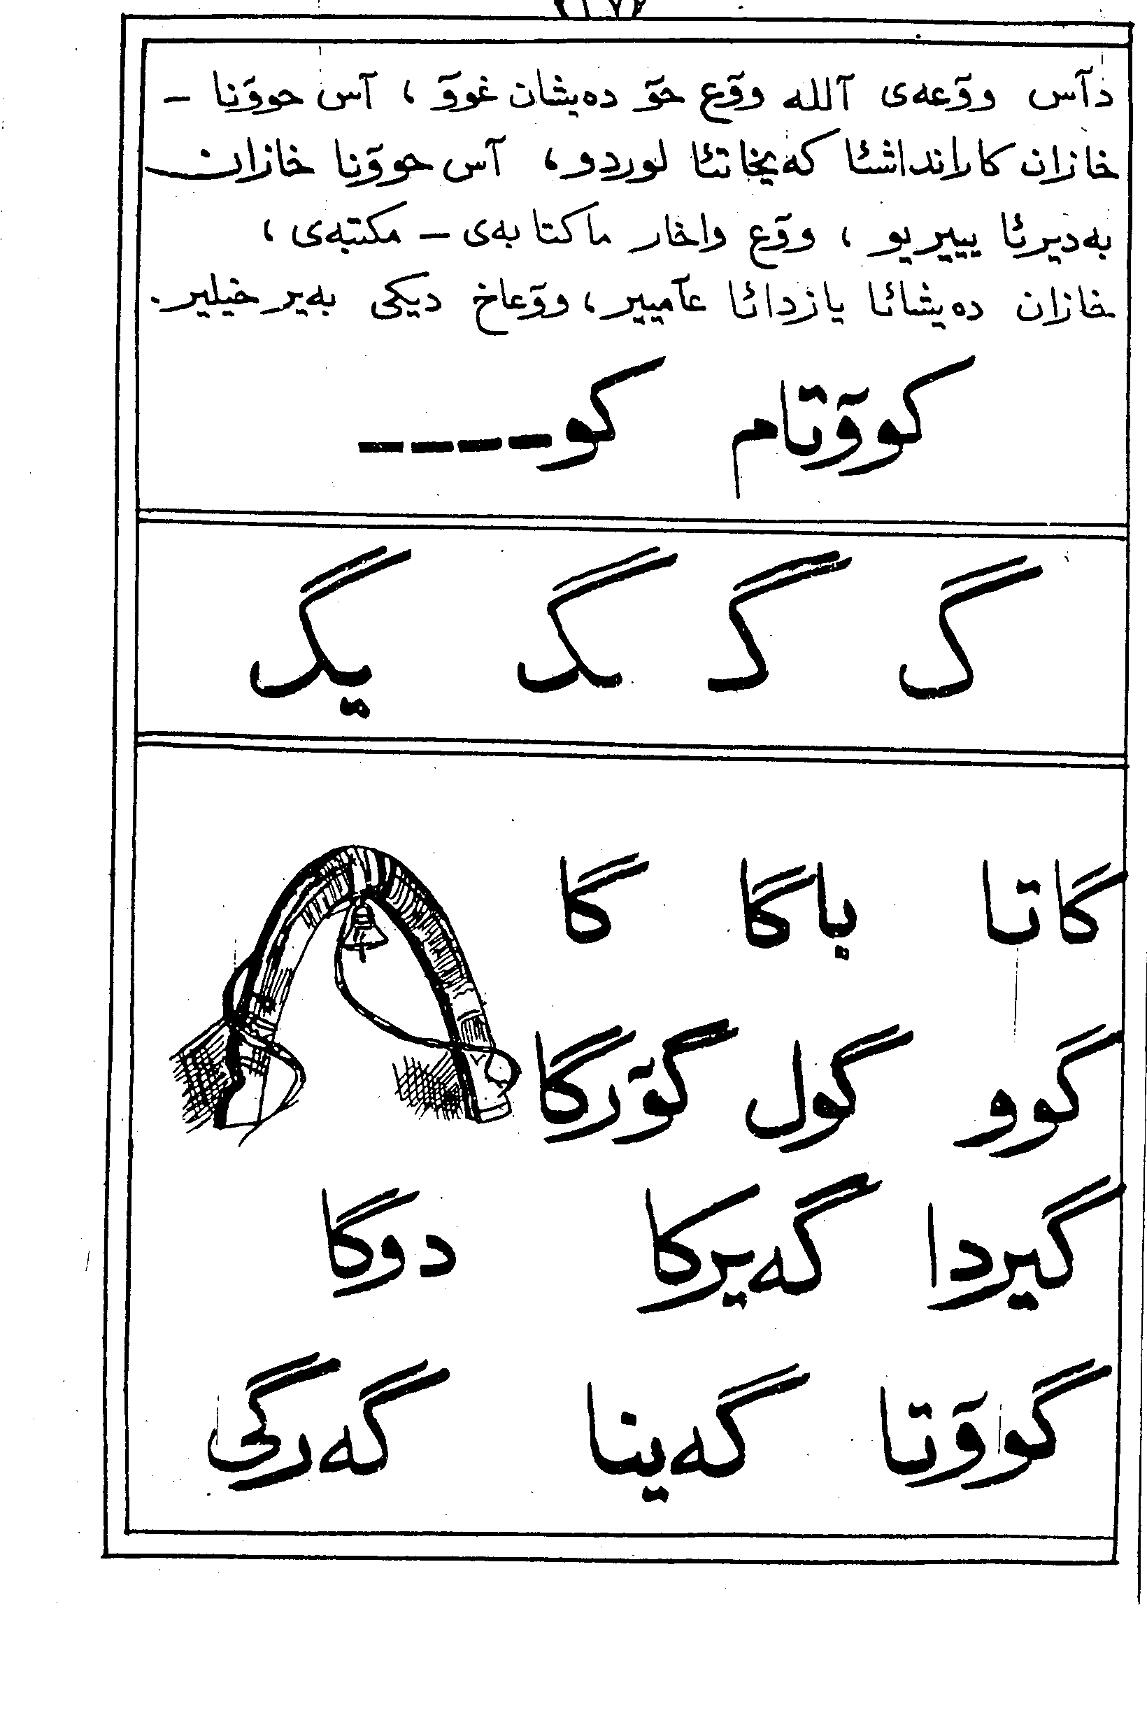 دآس وۆعەی آللە وۆع حۆ دەیشان غوۆ، آس حوۆنا –
خازران کاراندا‌شئا کەیخانئا لوردو، آس حوۆنا خازران
بەدیرئا ییپریو، وۆع واخار ماکتابەی – مکتبەی،
خازران دەیشائا یازدائا عآمییر، وۆعاخ دیکی بەیر خیلیر.
کوۆتام کو – – – –
گ گ گ یگ
گاتا باگا گا
گوو گول گۆرگا
گیردا گەیرکا دوگا
گوۆتا گەینا گەرگی